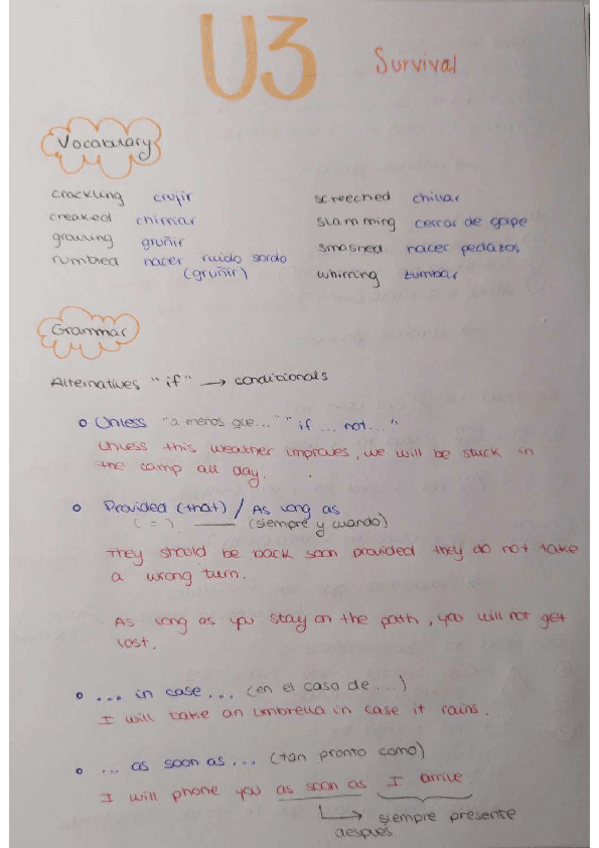 U3
Survival
Vocabulary
crackling crujir
creaked chirriar
growling gruñir
rumbled hacer ruido sordo
(gruñir)
screeched chillar
slamming cerrar de golpe
smashed hacer pedazos
whirring zumbar
Grammar
Alternatives "if" → conditionals
Unless "a menos que..." "if ... not..."
Unless this weather improves, we will be stuck in
the camp all day.
Provided (that) / As long as
( = ) (siempre y cuando)
They should be back soon provided they do not take
a wrong turn.
As long as you stay on the path, you will not get
lost.
... in case ... (en el caso de ...)
I will take an umbrella in case it rains.
... as soon as ... (tan pronto como)
I will phone you as soon as I arrive
siempre presente
después